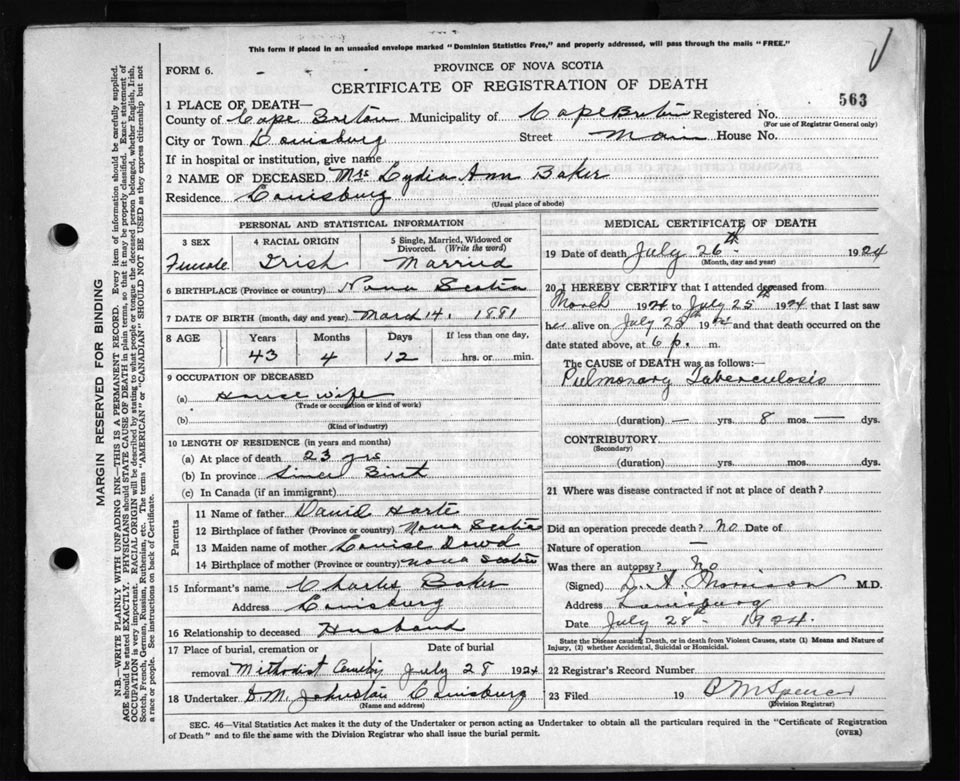 This form if placed in an unsealed envelope marked "Dominion Statistics Free," and properly addressed, will pass through the mails "FREE."
FORM 6.
PROVINCE OF NOVA SCOTIA
CERTIFICATE OF REGISTRATION OF DEATH
563
1 PLACE OF DEATH—
County of Cape Breton Municipality of Cape Breton Registered No.
(For use of Registrar General only)
City or Town Louisburg Street Main House No.
If in hospital or institution, give name
2 NAME OF DECEASED Mrs Lydia Ann Baker
Residence Louisburg
(Usual place of abode)
PERSONAL AND STATISTICAL INFORMATION
3 SEX 4 RACIAL ORIGIN 5 Single, Married, Widowed or Divorced. (Write the word)
Female Irish Married
6 BIRTHPLACE (Province or country) Nova Scotia
7 DATE OF BIRTH (month, day and year) March 14, 1881
8 AGE Years Months Days If less than one day,
43 4 12 hrs. or min.
9 OCCUPATION OF DECEASED
(a) House wife
(Trade or occupation or kind of work)
(b)
(Kind of industry)
10 LENGTH OF RESIDENCE (in years and months)
(a) At place of death 23 yrs
(b) In province Since Birt
(c) In Canada (if an immigrant)
Parents
11 Name of father David Harte
12 Birthplace of father (Province or country) Nova Scotia
13 Maiden name of mother Louise Dowd
14 Birthplace of mother (Province or country) Nova Scotia
15 Informant's name Charles Baker
Address Louisburg
16 Relationship to deceased Husband
17 Place of burial, cremation or removal Date of burial
Methodist July 28 1924
18 Undertaker D.M. Johnston Louisburg
(Name and address)
MEDICAL CERTIFICATE OF DEATH
19 Date of death July 26th 1924
(Month, day and year)
20 I HEREBY CERTIFY that I attended deceased from
March 1924 to July 25th 1924 that I last saw
her alive on July 25th 1924 and that death occurred on
date stated above, at 6 p. m.
The CAUSE of DEATH was as follows:
Pulmonary Tuberculosis
(duration) — yrs. 8 mos. — dys.
CONTRIBUTORY
(Secondary)
(duration) yrs. mos. dys.
21 Where was disease contracted if not at place of death?
Did an operation precede death? no Date of
Nature of operation —
Was there an autopsy? No
(Signed) D. A. Morrison M.D.
Address Louisburg
Date July 28th 1924.
State the Disease causing Death, or in death from Violent Causes, state (1) Means and Nature of
Injury, (2) whether Accidental, Suicidal or Homicidal.
22 Registrar's Record Number
23 Filed 19 B M Spencer
(Division Registrar)
SEC. 46—Vital Statistics Act makes it the duty of the Undertaker or person acting as Undertaker to obtain all the particulars required in the "Certificate of Registration
of Death" and to file the same with the Division Registrar who shall issue the burial permit. (OVER)
MARGIN RESERVED FOR BINDING
N.B.—WRITE PLAINLY WITH UNFADING INK—THIS IS A PERMANENT RECORD. Every item of information should be carefully supplied.
AGE should be stated EXACTLY. PHYSICIANS should STATE CAUSE OF DEATH in plain terms, so that it may be properly classified. Exact statement of
OCCUPATION is very important. RACIAL ORIGIN will be described by stating to what people or tongue the deceased person belonged, whether English, Irish,
Scotch, French, German, Russian, Ruthenian, etc. The terms "AMERICAN" or "CANADIAN" SHOULD NOT BE USED as they express citizenship but not
a race or people. See instructions on back of Certificate.